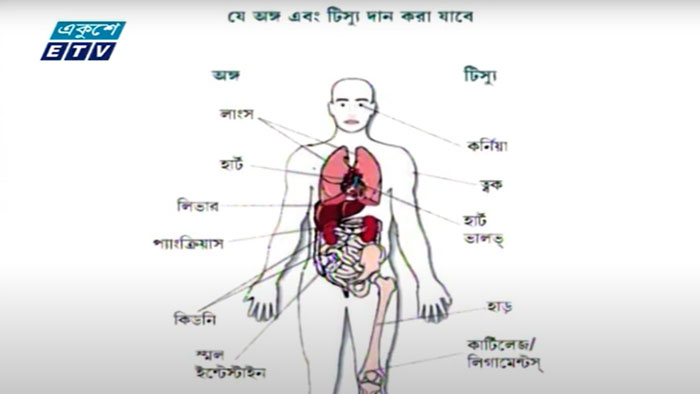 যে অঙ্গ এবং টিস্যু দান করা যাবে
একুশে
ETV
অঙ্গ
টিস্যু
লাংস
হার্ট
লিভার
প্যাংক্রিয়াস
কিডনি
স্মল
ইন্টেস্টাইন
কর্নিয়া
ত্বক
হার্ট
ভালভ্
হাড়
কার্টিলেজ/
লিগামেন্টস্